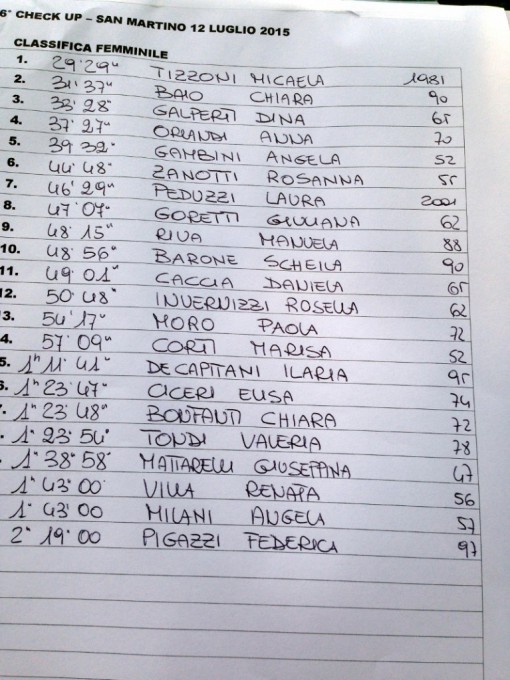 6° CHECK UP – SAN MARTINO 12 LUGLIO 2015
CLASSIFICA FEMMINILE
1. 29'29" TIZZONI MICAELA 1981
2. 31'37" BAIO CHIARA 90
3. 33'28" GALPERTI DINA 65
4. 37'27" ORLANDI ANNA 70
5. 39'32" GAMBINI ANGELA 52
6. 44'48" ZANOTTI ROSANNA 55
7. 46'29" PEDUZZI LAURA 2001
8. 47'07" GORETTI GIULIANA 62
9. 48'15" RIVA MANUELA 88
10. 48'56" BARONE SCHEILA 90
11. 49'01" CACCIA DANIELA 65
12. 50'48" INVERNIZZI ROSELLA 62
3. 54'17" MORO PAOLA 72
4. 57'09" CORTI MARISA 52
5. 1h 11'41" DE CAPITANI ILARIA 95
6. 1h 23'47" CICERI ELISA 74
. 1h 23'48" BONFANTI CHIARA 72
. 1h 23'54" TONDI VALERIA 78
. 1h 38'58" MATTARELLI GIUSEPPINA 47
1h 43'00 VILLA RENATA 56
1h 43'00 MILANI ANGELA 57
2h 19'00 PIGAZZI FEDERICA 97